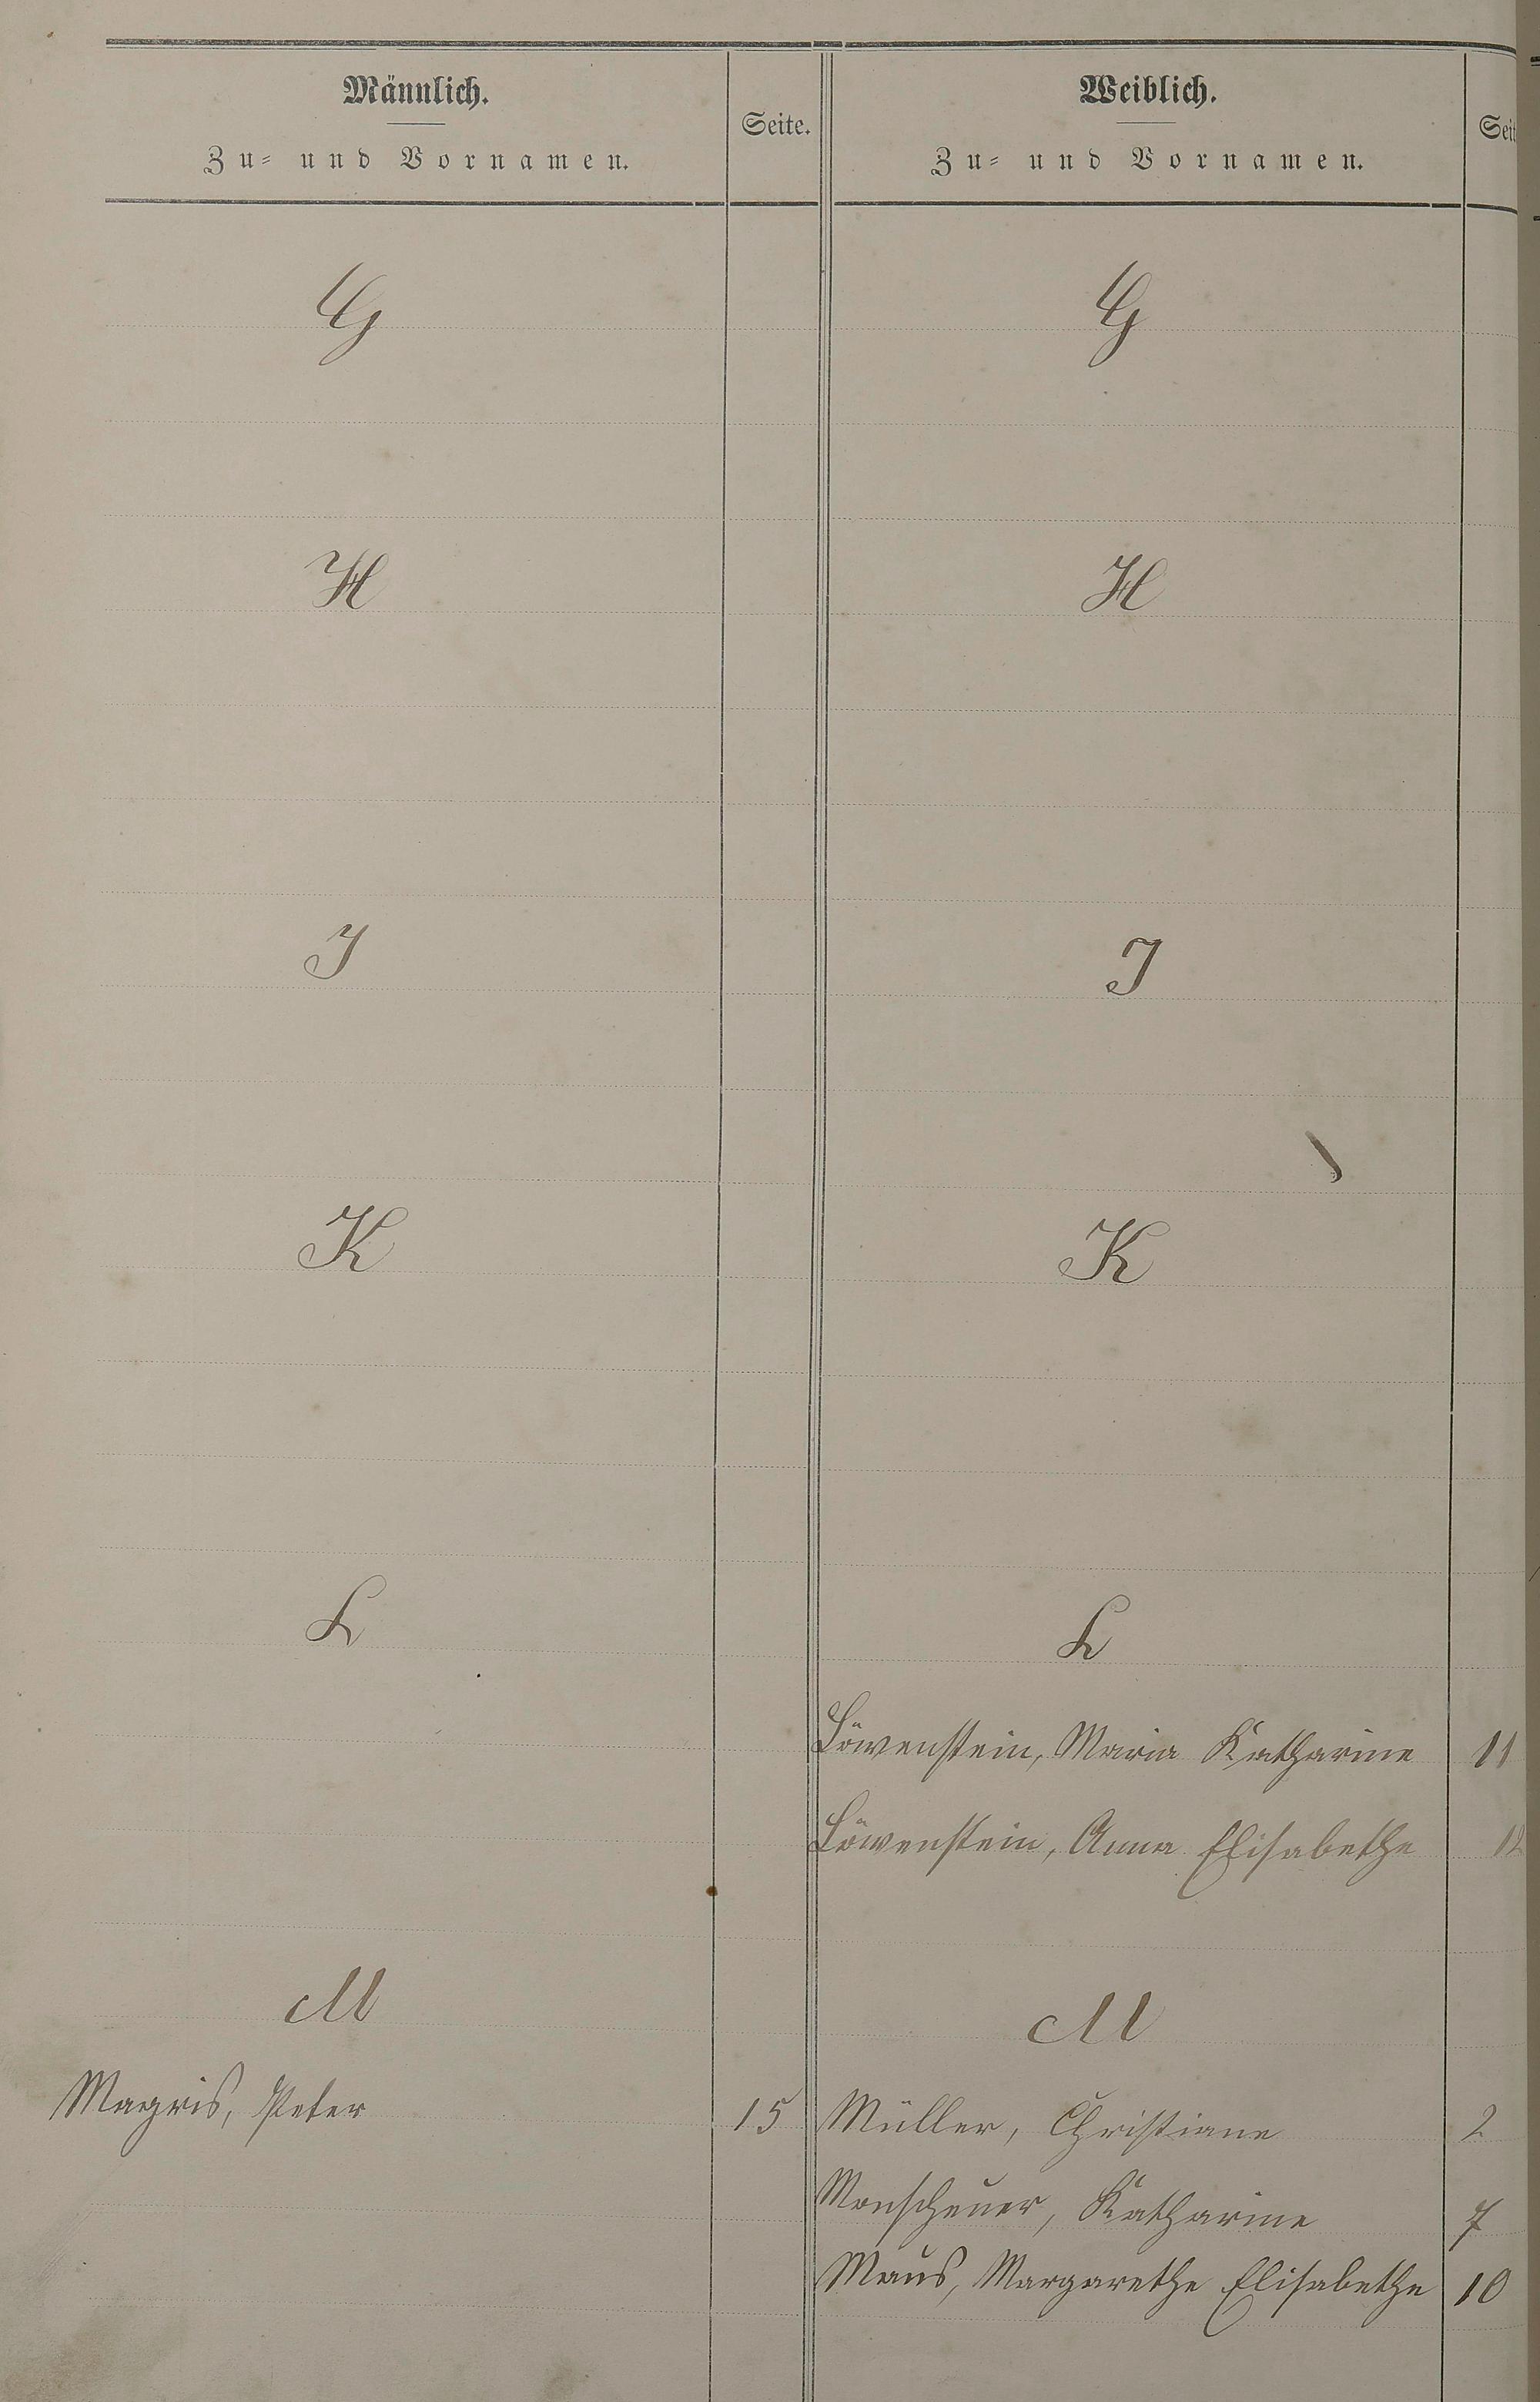 Männlich.
Zu- und Vornamen.
Seite.
Weiblich.
Zu- und Vornamen.
Seit
G
G
H
H
J
J
K
K
L
L
Löwenstein, Maria Katharine 11
Löwenstein, Anna Elisabethe 12
M
M
Magris, Peter 15
Müller, Christiane 2
Monscheuer, Katharine 7
Maus, Margarethe Elisabethe 10